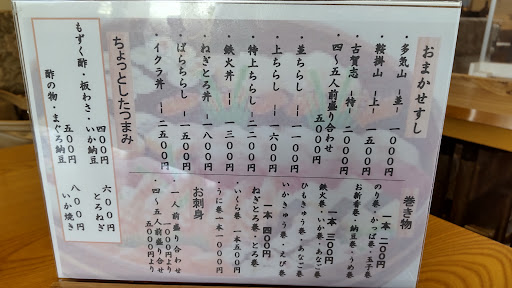 おまかせすし
多気山 ―並― 一〇〇〇円
鞍掛山 ―上― 一五〇〇円
古賀志 ―特― 二〇〇〇円
四～五人前盛り合わせ 五〇〇〇円
並ちらし 一一〇〇円
上ちらし 一六〇〇円
特上ちらし 二一〇〇円
鉄火丼 一三〇〇円
ねぎとろ丼 一八〇〇円
ばらちらし 一五〇〇円
イクラ丼 二五〇〇円
ちょっとしたつまみ
もずく酢・板わさ・いか納豆 四〇〇円
酢の物・まぐろ納豆 五〇〇円
とろねぎ 六〇〇円
いか焼き 八〇〇円
巻き物
のり巻・かっぱ巻・玉子巻
お新香巻・納豆巻・うめ巻
一本 二〇〇円
鉄火巻・いか巻・あなご巻
ひもきゅう巻・あなご巻
いかきゅう巻・えび巻
一本 三〇〇円
ねぎとろ巻・とろ巻
一本 四〇〇円
いくら巻 一本 五〇〇円
うに巻 一本 七〇〇円
お刺身
一人前盛り合わせ 一〇〇〇円より
四～五人前盛り合せ 五〇〇〇円より